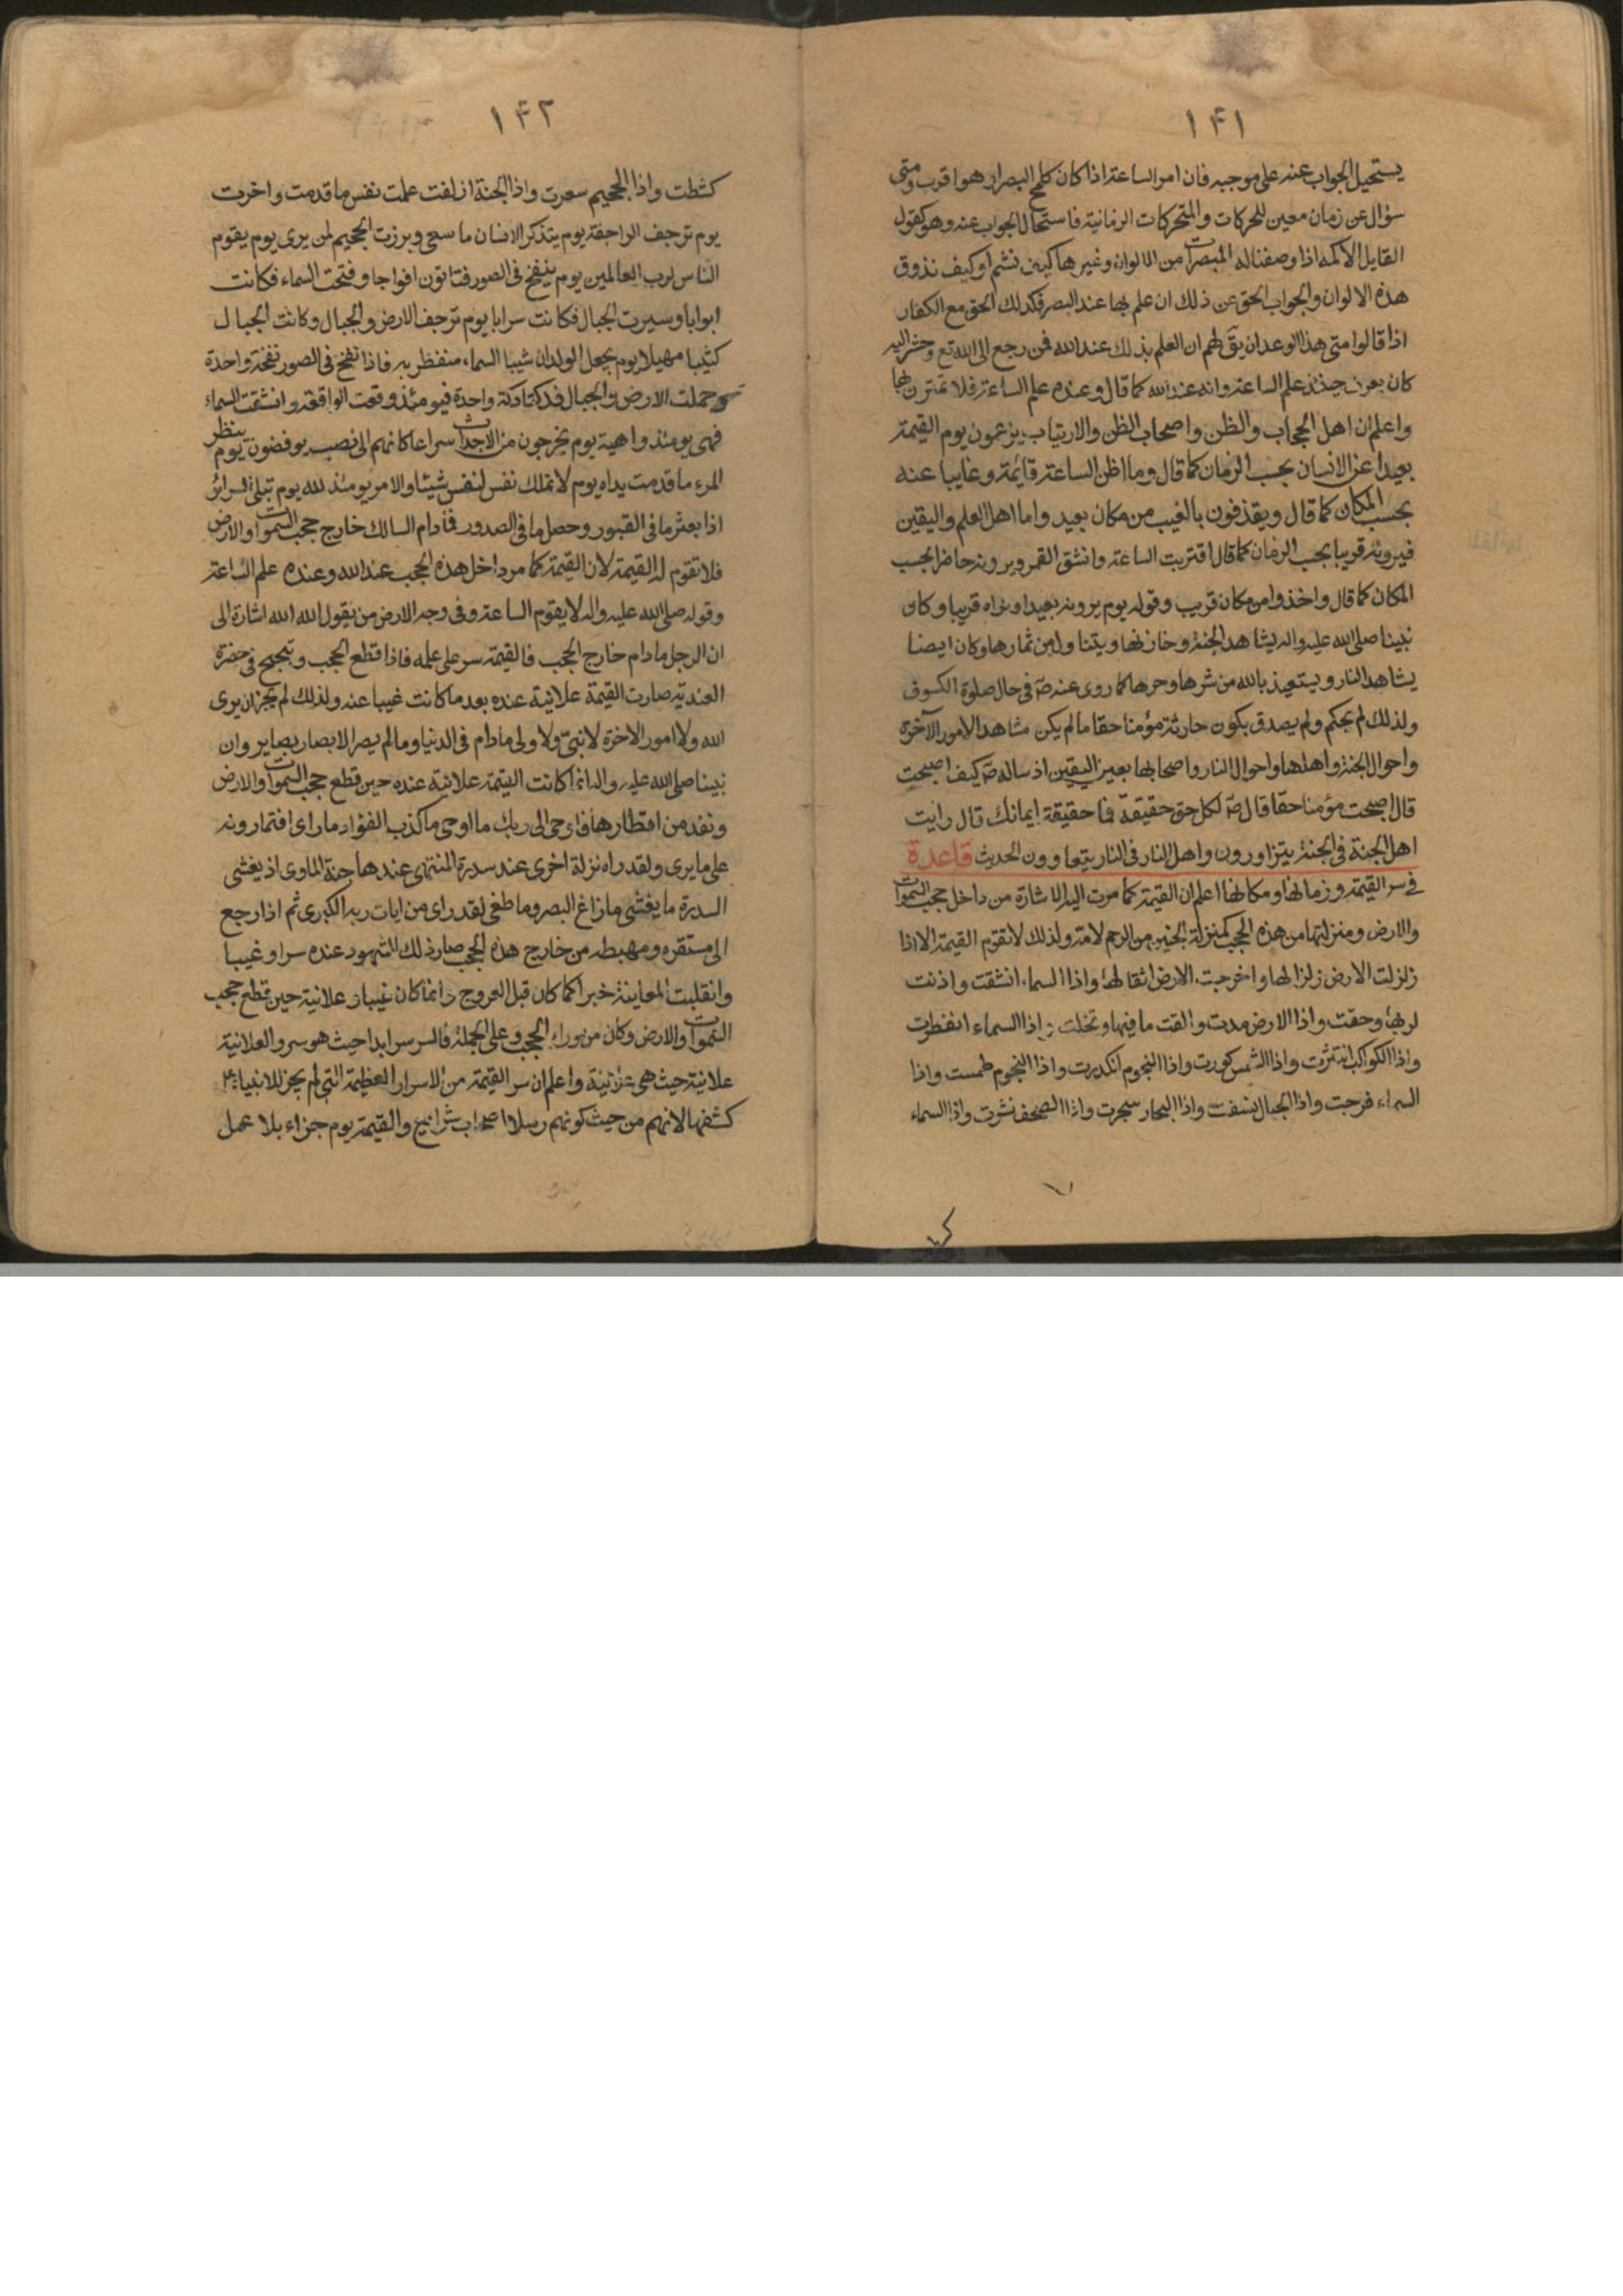 ۱۴۱
يستحيل الجواب عنه على موجبه فان امر الساعة اذا كان كلمح البصر او هو اقرب ومتى
سؤال عن زمان معين للحركات والمتحركات الزمانية فاستحال الجواب عنه وهو كقول
القايل الاكمه اذا وصفنا له المبصرات من الالوان وغيرها كيف نشم او كيف نذوق
هذه الالوان والجواب الحق عن ذلك ان علم بها عند البصر فكذلك الحق مع الكفار
اذا قالوا متى هذا الوعد ان يق لهم ان العلم بذلك عند الله فمن رجع الى الله تع وحشر اليه
كان يعرف حينئذ علم الساعة وانه عند الله كما قال وعنده علم الساعة فلا تمترن بها
واعلم ان اهل الحجاب والظن واصحاب الظن والارتياب يزعمون يوم القيمة
بعيدا عن الانسان بحسب الزمان كما قال وما اظن الساعة قائمة وغايبا عنه
بحسب المكان كما قال ويقذفون بالغيب من مكان بعيد واما اهل العلم واليقين
فيرونه قريبا بحسب الزمان كما قال اقتربت الساعة وانشق القمر ويرونه حاضرا بحسب
المكان كما قال واخذوا من مكان قريب وقوله يوم يرونه بعيدا ونراه قريبا وكان
نبينا صلى الله عليه واله يشاهد الجنة وخازنها ويتناول من ثمارها وكان ايضا
يشاهد النار ويستعيذ بالله من شرها وحرها كما روى عنه ص في حال صلوة الكسوف
ولذلك لم يحكم ولم يصدق بكون حارثة مؤمنا حقا ما لم يكن مشاهدا لامور الآخرة
واحوال الجنة واهلها واحوال النار واصحابها بعين اليقين اذ ساله ص كيف اصبحت
قال اصبحت مؤمنا حقا قال ص لكل حق حقيقة فما حقيقة ايمانك قال رايت
اهل الجنة في الجنة يتزاورون واهل النار في النار يتعاوون الحديث قاعدة
في سر القيمة وزمانها ومكانها اعلم ان القيمة كما مرت اليه الاشارة من داخل حجب السموات
والارض ومنزلتها من هذه الحجب كمنزلة الجنين من الرحم لامه ولذلك لا تقوم القيمة الا اذا
زلزلت الارض زلزالها واخرجت الارض اثقالها واذا السماء انشقت واذنت
لربها وحقت واذا الارض مدت والقت ما فيها وتخلت واذا السماء انفطرت
واذا الكواكب انتثرت واذا الشمس كورت واذا النجوم انكدرت واذا النجوم طمست واذا
السماء فرجت واذا الجبال نسفت واذا البحار سجرت واذا الصحف نشرت واذا السماء
۱۴۲
كشطت واذا الجحيم سعرت واذا الجنة ازلفت علمت نفس ما قدمت واخرت
يوم ترجف الراجفة يوم يتذكر الانسان ما سعى وبرزت الجحيم لمن يرى يوم يقوم
الناس لرب العالمين يوم ينفخ في الصور فتاتون افواجا وفتحت السماء فكانت
ابوابا وسيرت الجبال فكانت سرابا يوم ترجف الارض والجبال وكانت الجبال
كثيبا مهيلا يوم يجعل الولدان شيبا السماء منفطر به فاذا نفخ في الصور نفخة واحدة
وحملت الارض والجبال فدكتا دكة واحدة فيومئذ وقعت الواقعة وانشقت السماء
فهى يومئذ واهية يوم يخرجون من الاجداث سراعا كانهم الى نصب يوفضون يوم ينظر
المرء ما قدمت يداه يوم لا تملك نفس لنفس شيئا والامر يومئذ لله يوم تبلى السرائر
اذا بعثر ما في القبور وحصل ما في الصدور فما دام السالك خارج حجب السموات والارض
فلا تقوم له القيمة لان القيمة كما مر داخل هذه الحجب عند الله وعنده علم الساعة
وقوله صلى الله عليه واله لا يقوم الساعة وفى وجه الارض من يقول الله الله اشارة الى
ان الرجل ما دام خارج الحجب فالقيمة سر على علمه فاذا قطع الحجب وتبحبح في حضرة
العندية صارت القيمة علانية عنده بعد ما كانت غيبا عنه ولذلك لم يجز ان يرى
الله ولا امور الاخرة لا نبىّ ولا ولى ما دام فى الدنيا وما لم يصر الابصار بصاير وان
نبينا صلى الله عليه واله انما كانت القيمة علانية عنده حين قطع حجب السموات والارض
ونفذ من اقطارها فاوحى الى ربك ما اوحى ما كذب الفؤاد ما راى افتمارونه
على ما يرى ولقد راه نزلة اخرى عند سدرة المنتهى عندها جنة الماوى اذ يغشى
السدرة ما يغشى ما زاغ البصر وما طغى لقد راى من ايات ربه الكبرى ثم اذا رجع
الى مستقره ومهبطه من خارج هذه الحجب صار ذلك الشهود عنده سرا وغيبا
وانقلبت المعاينة خبرا كما كان قبل العروج وانما كان غيبا وعلانية حين قطع حجب
السموات والارض وكان من وراء الحجب وعلى الجملة فالسر سر ابدا حيث هو سر والعلانية
علانية حيث هى علانية واعلم ان سر القيمة من الاسرار العظيمة التى لم يجز للانبياء ع
كشفها لانهم من حيث كونهم رسلا اصحاب شرايع والقيمة يوم جزاء بلا عمل